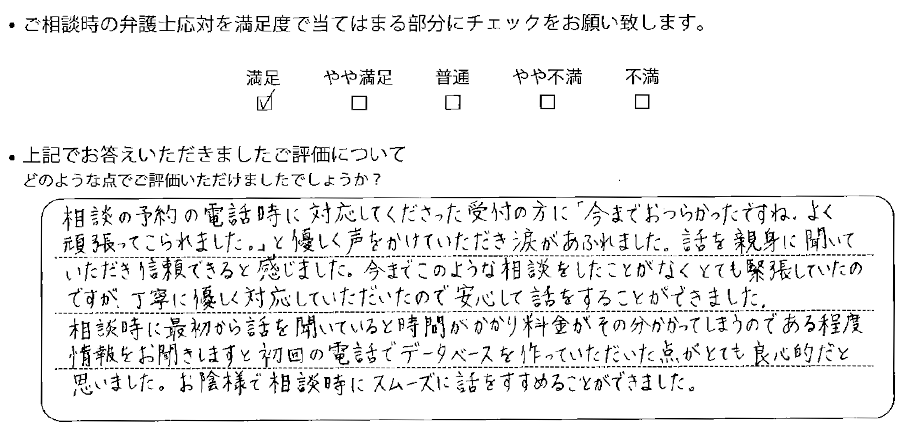 • ご相談時の弁護士応対を満足度で当てはまる部分にチェックをお願い致します。
満足 やや満足 普通 やや不満 不満
☑ □ □ □ □
• 上記でお答えいただきましたご評価について
どのような点でご評価いただけましたでしょうか？
相談の予約の電話時に対応してくださった受付の方に「今までおつらかったですね、よく
頑張ってこられました。」と優しく声をかけていただき涙があふれました。話を親身に聞いて
いただき信頼できると感じました。今までこのような相談をしたことがなくとても緊張していたの
ですが、丁寧に優しく対応していただいたので安心して話をすることができました。
相談時に最初から話を聞いていると時間がかかり料金がその分かかってしまうのである程度
情報をお聞きしますと初回の電話でデータベースを作っていただいた点がとても良心的だと
思いました。お陰様で相談時にスムーズに話をすすめることができました。